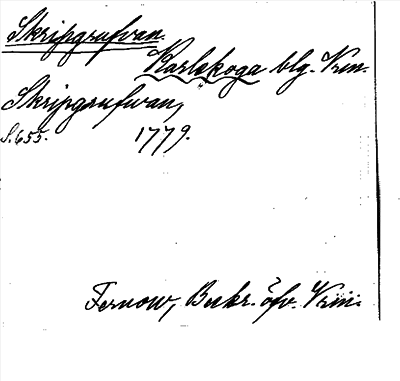 Skripgrufvan.
Karlskoga blg. Vrm.
Skripgrufwan,
S. 655. 1779.
Fernow, Beskr. öfv. Vrm.